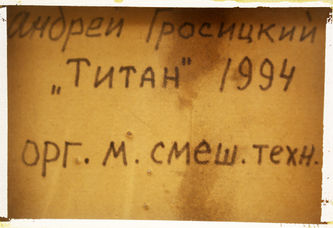 андрей Гросицкий
„Титан" 1994
орг. м. смеш. техн.